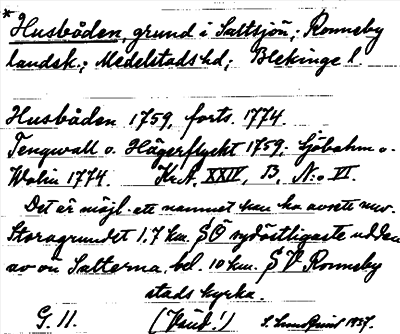 *
Husbåden, grund i Saltsjön; Ronneby
landsk.; Medelstads hd; Blekinge l.
Husbåden 1759, forts. 1774.
Tengwall o. Hägerflycht 1759; Sjöbohm o.
Wolin 1774. Kr.A. XXIV, B, N:o VI.
Det är möjl. att namnet kan ha avsetts nuv.
Storagrundet 1,7 km. SÖ sydöstligaste udden
av ön Salterna, bel. 10 km. SV Ronneby
stads kyrka.
G. 11. 1937.